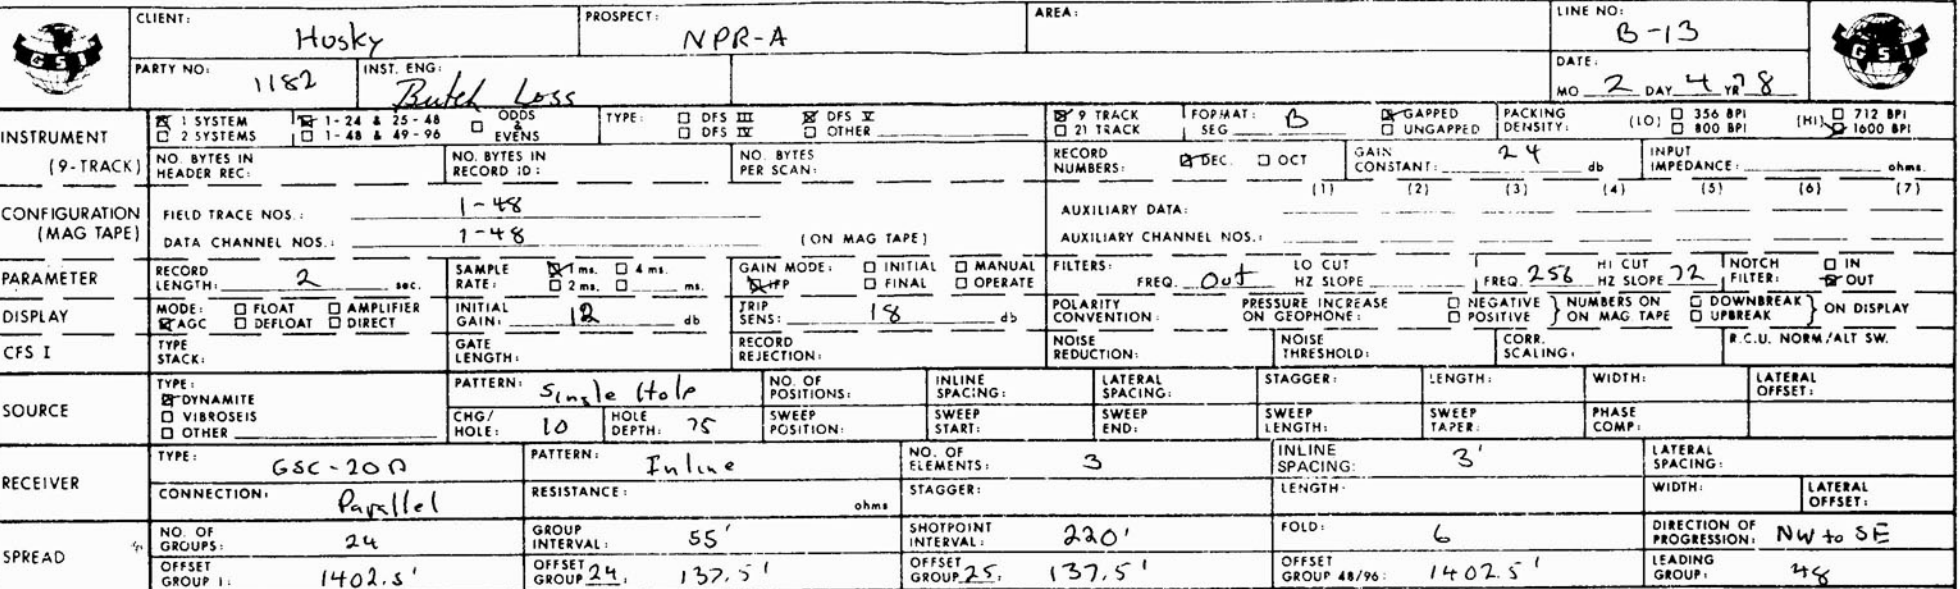 CLIENT: Husky PROSPECT: NPR-A AREA: LINE NO: B-13
GSI GSI
PARTY NO: 1182 INST. ENG: Butch Loss DATE: MO 2 DAY 4 YR 78
INSTRUMENT (9-TRACK)
☒ 1 SYSTEM ☒ 1-24 & 25-48 ☐ ODDS & EVENS TYPE: ☐ DFS III ☒ DFS V ☒ 9 TRACK FORMAT: B ☒ GAPPED PACKING DENSITY: (LO) ☐ 356 BPI (HI) ☐ 712 BPI
☐ 2 SYSTEMS ☐ 1-48 & 49-96 ☐ DFS IV ☐ OTHER ☐ 21 TRACK SEG ☐ UNGAPPED ☐ 800 BPI ☒ 1600 BPI
NO. BYTES IN HEADER REC: NO. BYTES IN RECORD ID: NO. BYTES PER SCAN: RECORD NUMBERS: ☒ DEC. ☐ OCT GAIN CONSTANT: 24 db INPUT IMPEDANCE: ohms.
CONFIGURATION (MAG TAPE)
(1) (2) (3) (4) (5) (6) (7)
FIELD TRACE NOS.: 1-48 AUXILIARY DATA:
DATA CHANNEL NOS.: 1-48 (ON MAG TAPE) AUXILIARY CHANNEL NOS.:
PARAMETER
RECORD LENGTH: 2 sec. SAMPLE RATE: ☒ 1 ms. ☐ 4 ms. ☐ 2 ms. ☐ ms. GAIN MODE: ☐ INITIAL ☐ MANUAL ☒ IFP ☐ FINAL ☐ OPERATE FILTERS: FREQ. Out LO CUT HZ SLOPE FREQ. 256 HI CUT HZ SLOPE 72 NOTCH FILTER: ☐ IN ☒ OUT
DISPLAY
MODE: ☐ FLOAT ☐ AMPLIFIER ☒ AGC ☐ DEFLOAT ☐ DIRECT INITIAL GAIN: 12 db TRIP SENS: 18 db POLARITY CONVENTION: PRESSURE INCREASE ON GEOPHONE: ☐ NEGATIVE ☐ POSITIVE } NUMBERS ON ON MAG TAPE ☐ DOWNBREAK ☐ UPBREAK } ON DISPLAY
CFS I
TYPE STACK: GATE LENGTH: RECORD REJECTION: NOISE REDUCTION: NOISE THRESHOLD: CORR. SCALING: R.C.U. NORM/ALT SW.
SOURCE
TYPE: ☒ DYNAMITE ☐ VIBROSEIS ☐ OTHER PATTERN: Single Hole NO. OF POSITIONS: INLINE SPACING: LATERAL SPACING: STAGGER: LENGTH: WIDTH: LATERAL OFFSET:
CHG/HOLE: 10 HOLE DEPTH: 75 SWEEP POSITION: SWEEP START: SWEEP END: SWEEP LENGTH: SWEEP TAPER: PHASE COMP:
RECEIVER
TYPE: GSC-20D PATTERN: Inline NO. OF ELEMENTS: 3 INLINE SPACING: 3' LATERAL SPACING:
CONNECTION: Parallel RESISTANCE: ohms STAGGER: LENGTH: WIDTH: LATERAL OFFSET:
SPREAD
NO. OF GROUPS: 24 GROUP INTERVAL: 55' SHOTPOINT INTERVAL: 220' FOLD: 6 DIRECTION OF PROGRESSION: NW to SE
OFFSET GROUP 1: 1402.5' OFFSET GROUP 24: 137.5' OFFSET GROUP 25: 137.5' OFFSET GROUP 48/96: 1402.5' LEADING GROUP: 48